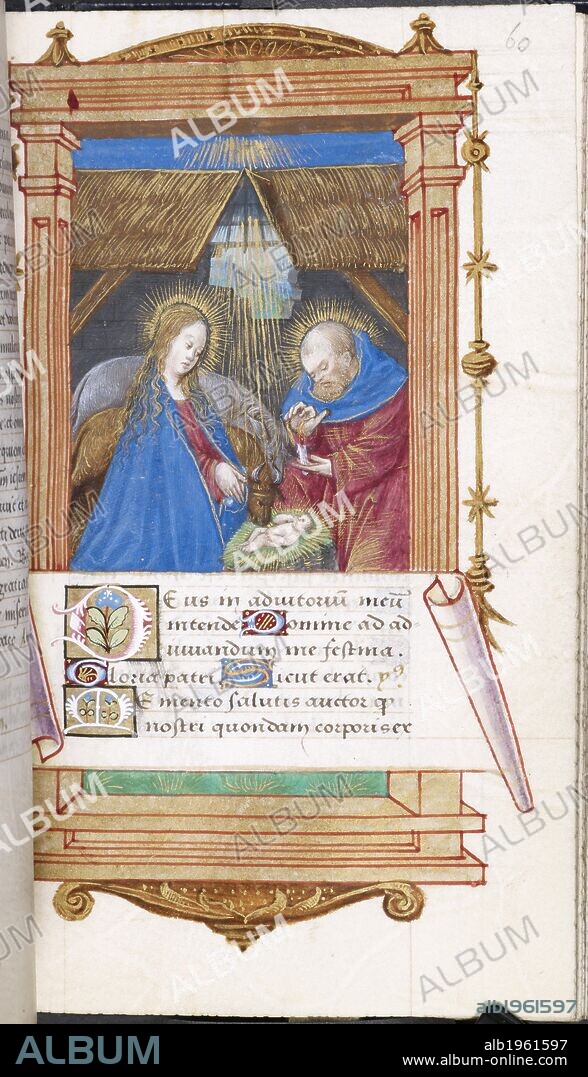 60
Deus in adiutoriū meū
intende Domine ad ad-
iuuandum me festina.
Gloria patri. Sicut erat. yꝰ
Memento salutis auctor q
nostri quondam corporis ex
ALBUM
alb1961597
ALBUM
alb1961597
www.album-online.com